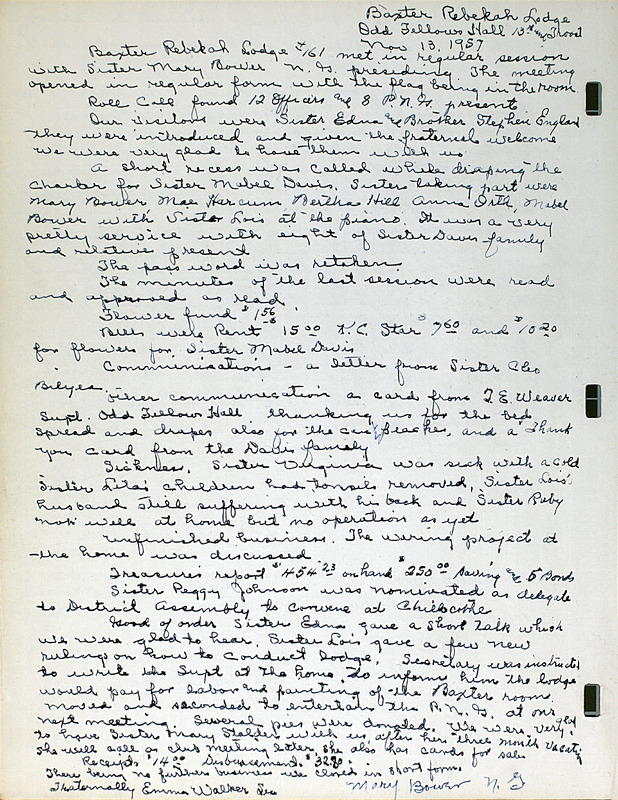 Baxter Rebekah Lodge
Odd Fellows Hall 13th & Troost
Nov 13, 1957
Baxter Rebekah Lodge #161 met in regular session
with Sister Mary Bower N. G. presiding. The meeting
opened in regular form with the flag being in the room
Roll Call found 12 Officers & 8 P. N. Gs. present
Our visitors were Sister Edna & Brother Stephen England
they were introduced and given the fraternal welcome
we were very glad to have them with us
A short recess was called while draping the
Charter for Sister Mabel Davis. Sisters taking part were
Mary Bower Mae Harcum Bertha Hill Anna Orth, Mabel
Bower with Sister Lois at the piano. It was a very
pretty service with eight of Sister Davis family
and relatives present
The pass word was retaken.
The minutes of the last session were read
and approved as read
Flower fund $1.56
Bills were Rent 15.00 K.C. Star $7.60 and $10.20
for flowers for Sister Mabel Davis
Communications - a letter from Sister Cleo
Bilyea.
Other communication a card from T. E. Weaver
Supt. Odd Fellows Hall thanking us for the bed
spread and drapes also for the case of peaches, and a Thank
you card from the Davis family
Sickness, Sister Virginia was sick with a cold
Sister Lila's children had tonsils removed, Sister Lois'
husband still suffering with his back and Sister Ruby
not well at home but no operation as yet
Unfinished business. The wiring project at
the home was discussed
Treasures report $454.23 on hand $250.00 saving & 5 Bonds
Sister Peggy Johnson was nominated as delegate
to District Assembly to convene at Chillicothe
Good of order Sister Edna gave a short talk which
we were glad to hear. Sister Lois gave a few new
rulings on how to conduct lodge. Secretary was instructed
to write the Supt at the home to inform him the lodge
would pay for labor and painting of the Baxter room.
Moved and seconded to entertain the P. N. Gs. at our
next meeting. Several pies were donated. We were very glad
to have Sister Mary with us after her three month vacation
She will call a club meeting later. She also has cards for sale
Receipts $14.00 Disbursement $32.80
There being no further business we closed in short form.
Fraternally Emma Walker Sec
Mary Bower N. G